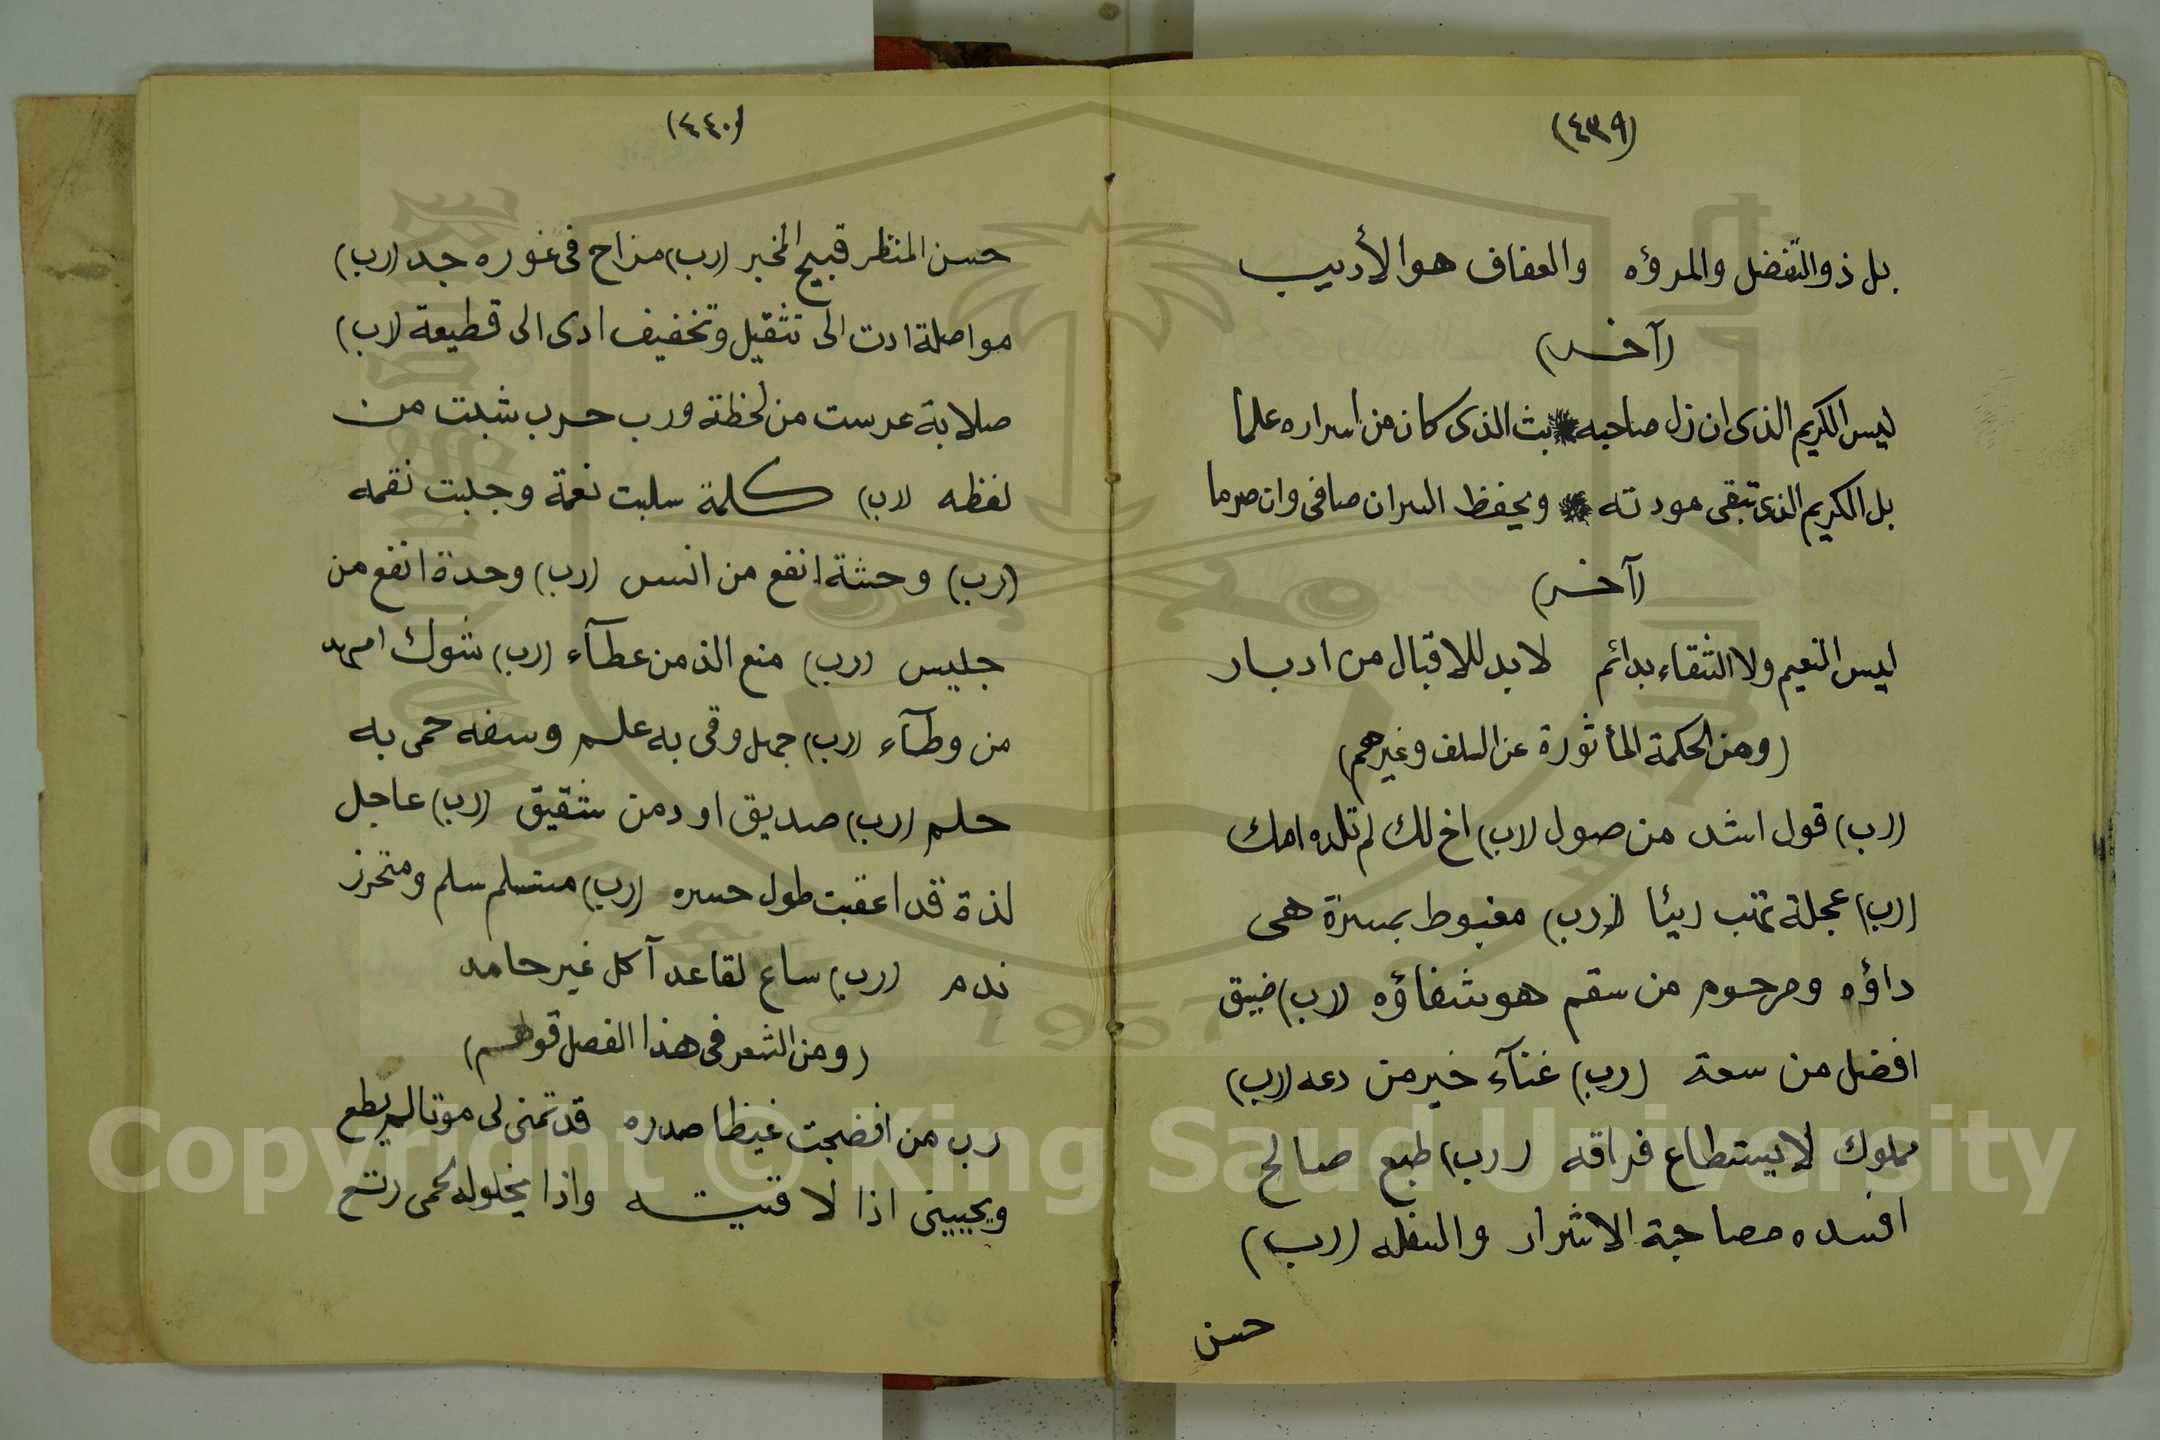 (٤٣٩)
بل ذو التفضل والمروؤه والعفاف هو الأديب
(آخر)
ليس الكريم الذى ان زل صاحبه بث الذى كان من اسراره علما
بل الكريم الذى تبقى مودته ويحفظ السر ان صافى وان صرما
(آخر)
ليس النعيم ولا الشقاء بدائم لا بد للاقبال من ادبار
(ومن الحكمة المأثورة عن السلف وغيرهم)
(رب) قول اشد من صول (رب) اخ لك لم تلده امك
(رب) عجلة تهب ريثا (رب) مغبوط بمسرة هى
داؤه ومرحوم من سقم هو شفاؤه (رب) ضيق
افضل من سعة (رب) عنآء خير من دعه (رب)
مملوك لا يستطاع فراقه (رب) طبع صالح
افسده مصاحبة الاشرار والسفله (رب)
حسن
(٤٤٠)
حسن المنظر قبيح المخبر (رب) مزاح فى غوره جد (رب)
مواصلة ادت الى تثقيل وتخفيف ادى الى قطيعة (رب)
صلابة غرست من لحظة ورب حرب شبت من
لفظه (رب) كلمة سلبت نعمة وجلبت نقمه
(رب) وحشة انفع من انس (رب) وحدة انفع من
جليس (رب) منع الذ من عطآء (رب) شوك امهد
من وطآء (رب) جهل وقى به علم وسفه حمى به
حلم (رب) صديق اود من شقيق (رب) عاجل
لذة قد اعقبت طول حسره (رب) مستسلم سلم ومتحرز
ندم (رب) ساع لقاعد آكل غير حامد
(ومن الشعر فى هذا الفصل قولهم)
رب من انضجت غيظا صدره قد تمنى لى موتا لم يطع
ويحيينى اذا لاقيته واذا يخلو له لحمى رتع
Copyright © King Saud University
1957